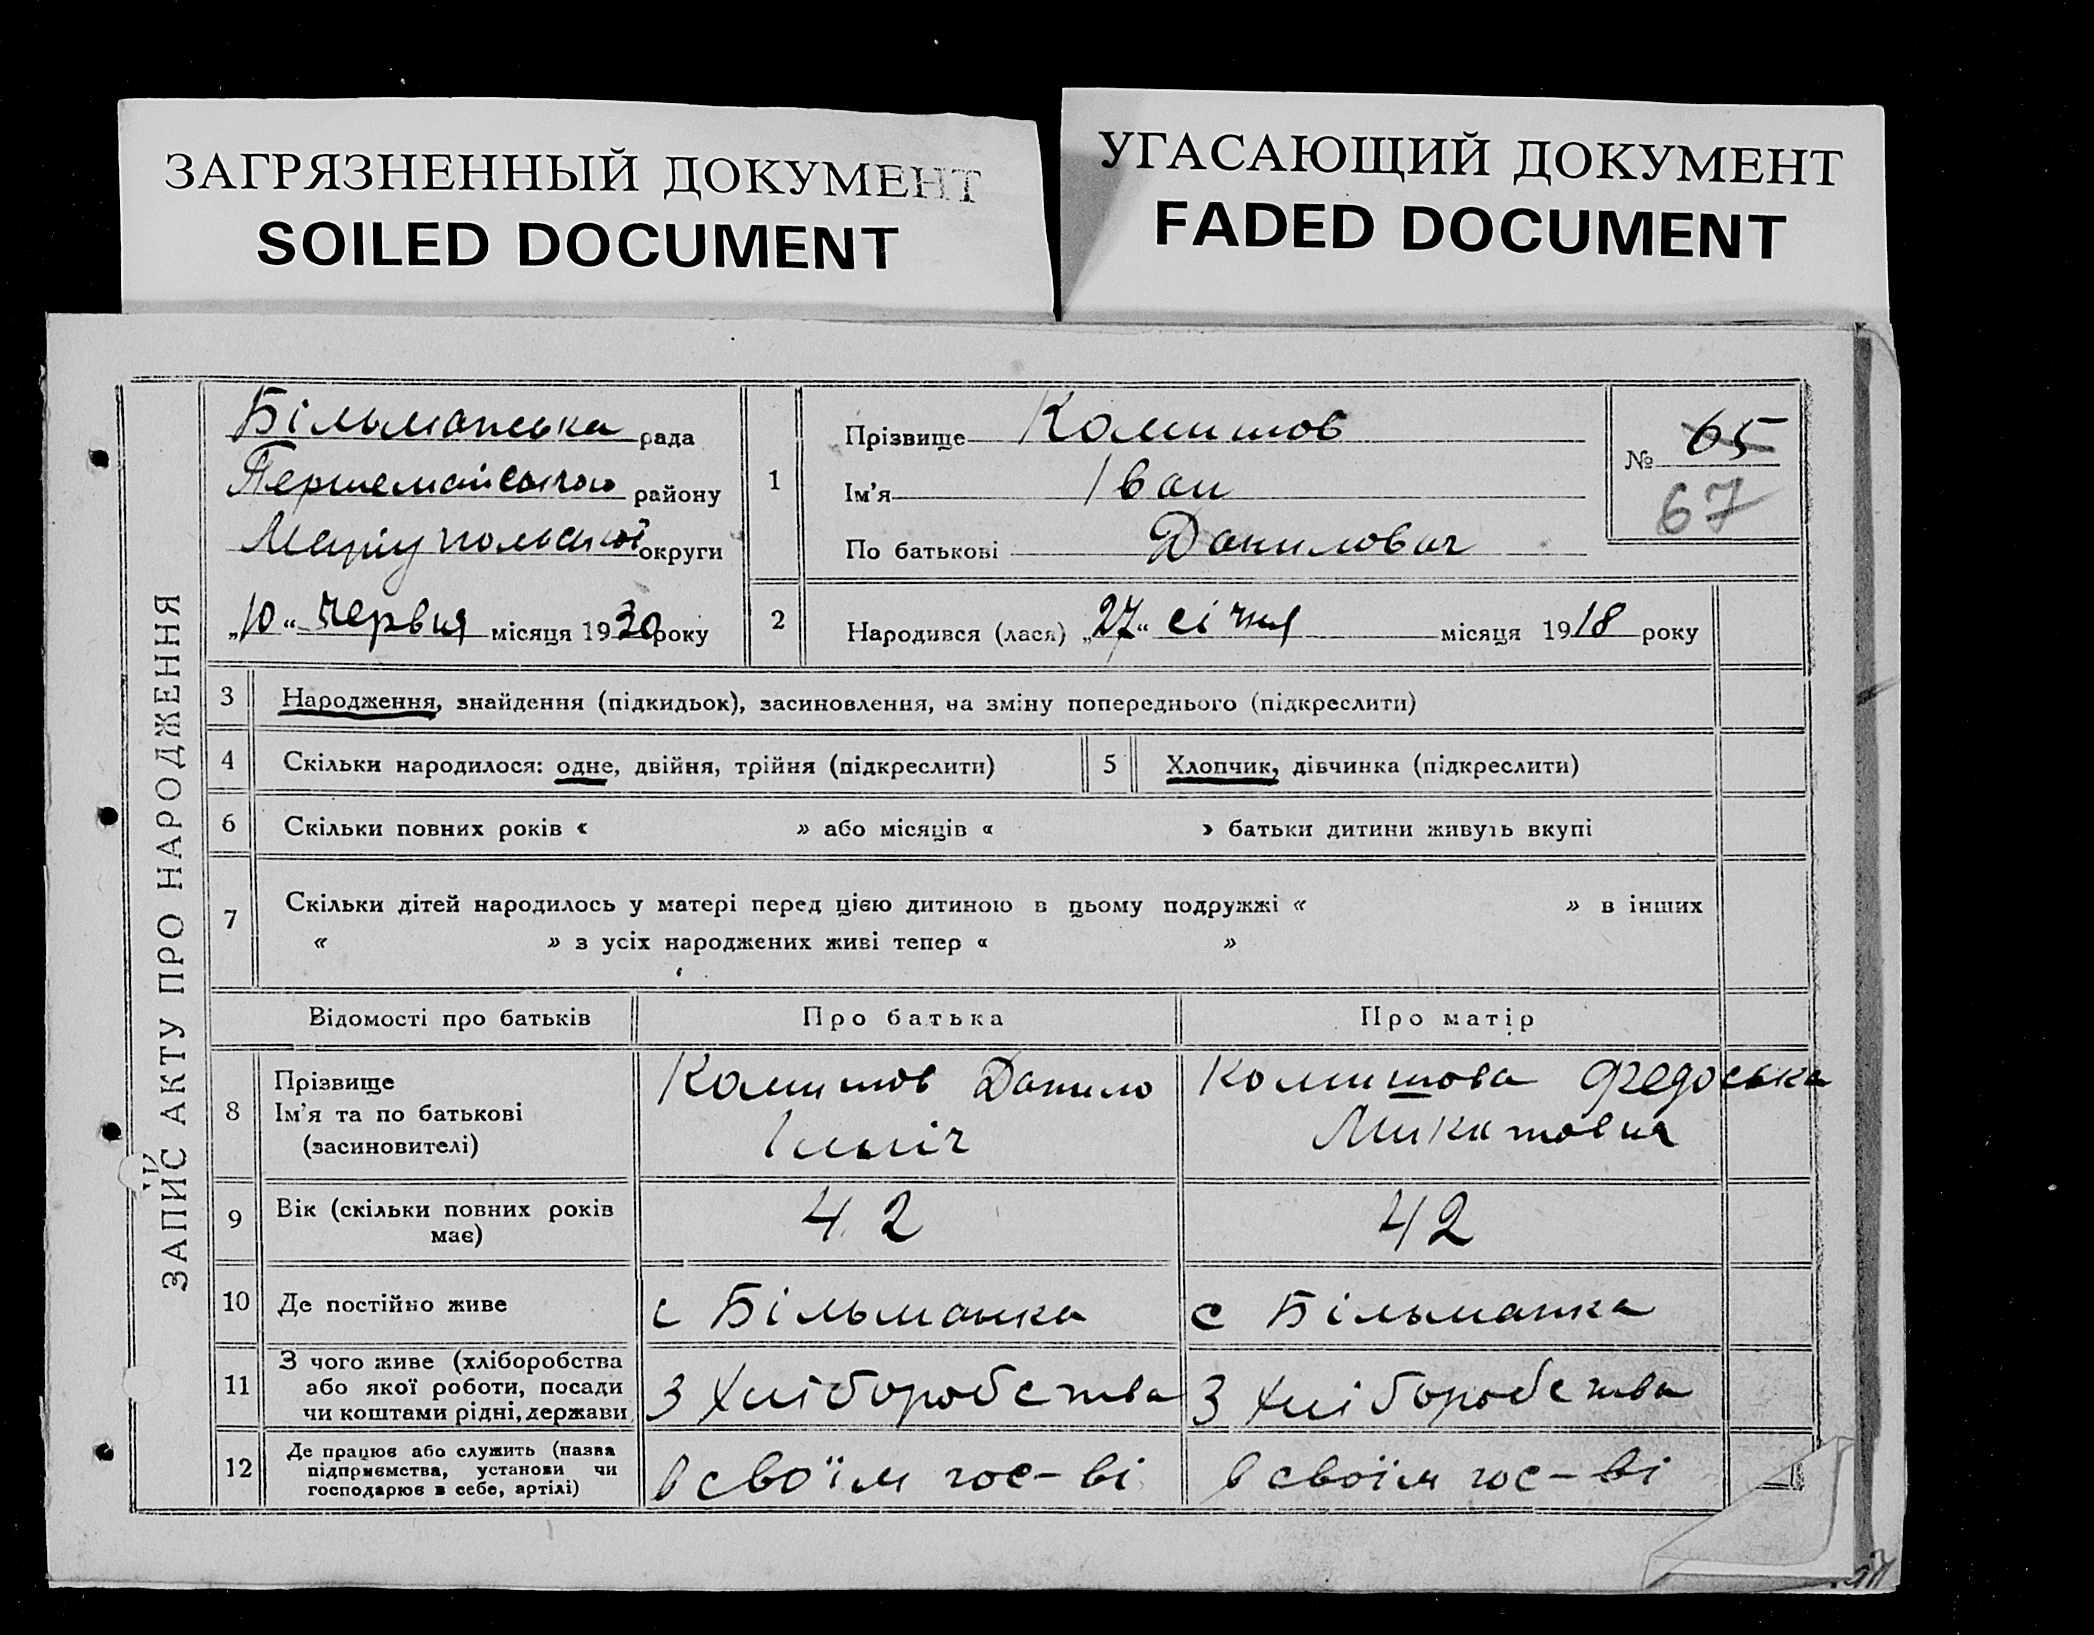 ЗАГРЯЗНЕННЫЙ ДОКУМЕНТ
SOILED DOCUMENT
УГАСАЮЩИЙ ДОКУМЕНТ
FADED DOCUMENT
ЗАПИС АКТУ ПРО НАРОДЖЕННЯ
Більманська рада
Першемайського району
Маріупольської округи
„10“ червня місяця 1930 року
1
Прізвище Комишов
Ім'я Іван
По батькові Данилович
№ 65
67
2
Народився (лася) „27“ січня місяця 1918 року
3 Народження, знайдення (підкидьок), засиновлення, на зміну попереднього (підкреслити)
4 Скільки народилося: одне, двійня, трійня (підкреслити)
5 Хлопчик, дівчинка (підкреслити)
6 Скільки повних років « » або місяців « » батьки дитини живуть вкупі
7 Скільки дітей народилось у матері перед цією дитиною в цьому подружжі « » в інших
« » з усіх народжених живі тепер « »
Відомості про батьків Про батька Про матір
8
Прізвище
Ім'я та по батькові
(засиновителі)
Комишов Данило
Ілліч
Комишова Федоська
Микитовна
9
Вік (скільки повних років
має)
42
42
10 Де постійно живе
с Більманка
с Більманка
11
З чого живе (хліборобства
або якої роботи, посади
чи коштами рідні, держави
З хліборобства
З хліборобства
12
Де працює або служить (назва
підприємства, установи чи
господарює в себе, артілі)
В своїм гос-ві
В своїм гос-ві